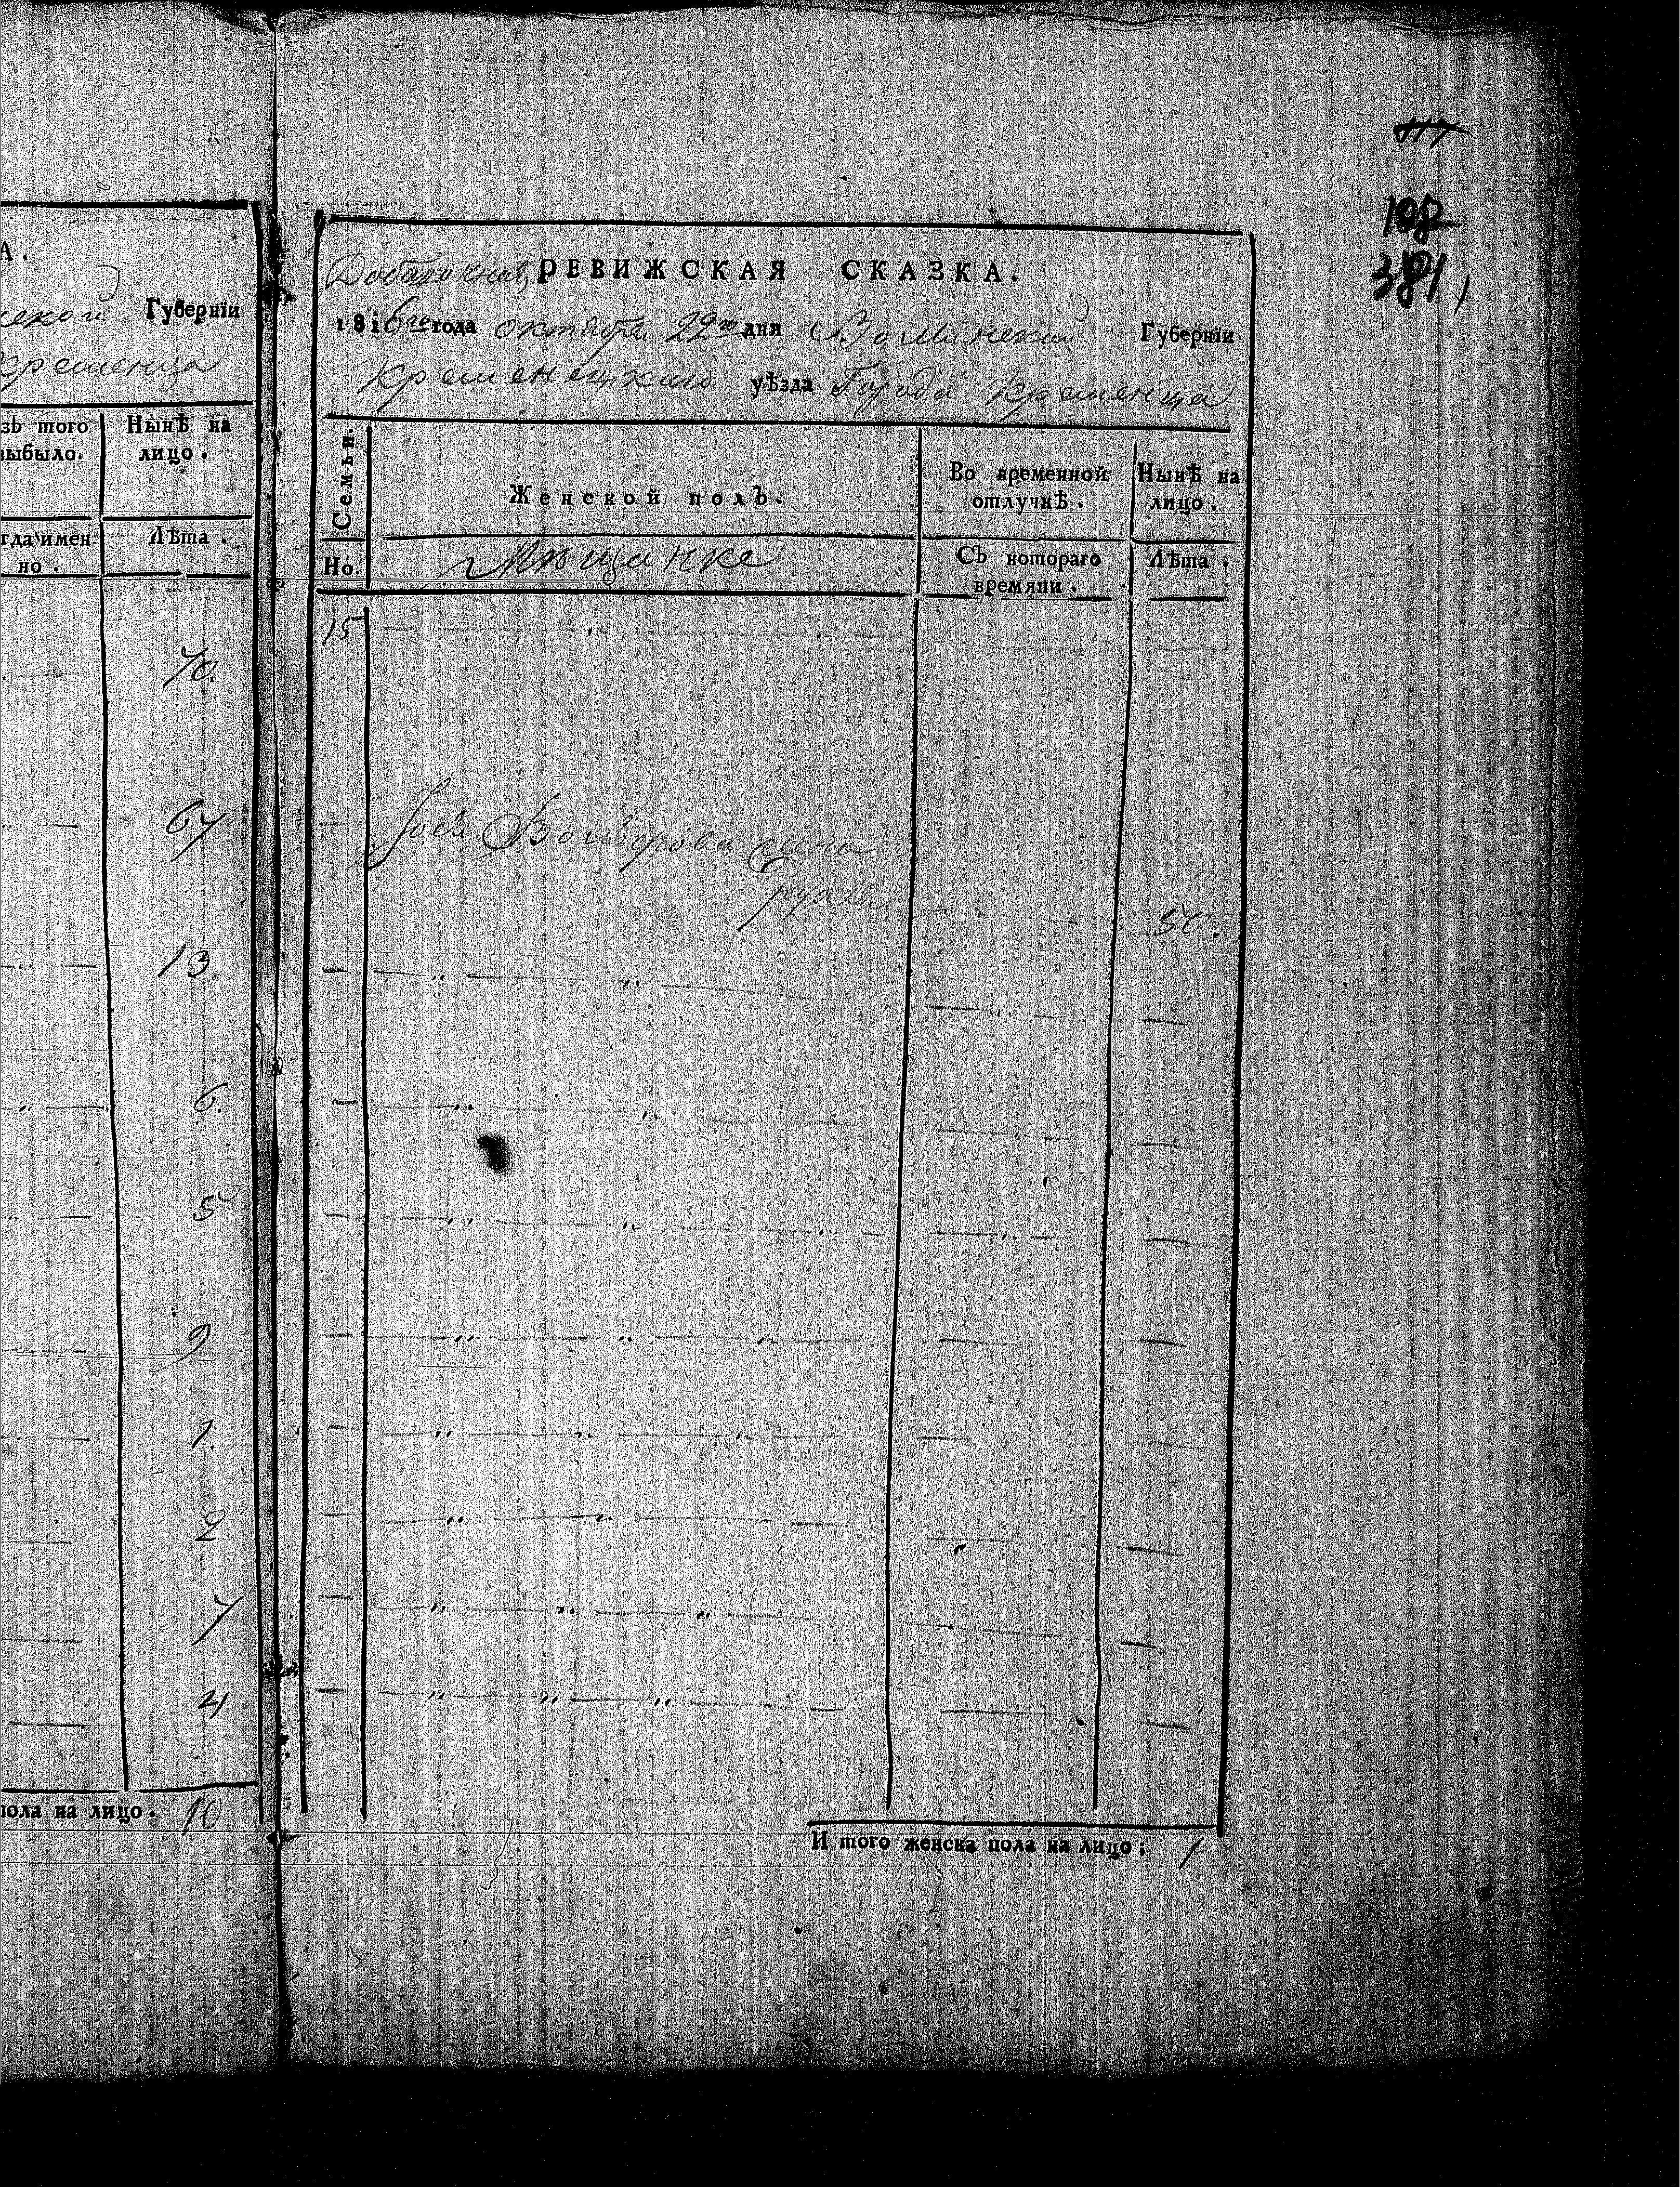 А.
Губернїи
кременца
зъ того
выбыло.
Нынѣ на
лицо.
гда имен
но.
Лѣта.
70.
67
13.
6.
5
9
1.
2
7
4
пола на лицо. 10
108
381
Добавочная РЕВИЖСКАЯ СКАЗКА.
1816го года октября 22го дня Волинской Губернїи
Кременецкаго уѣзда Города Кременца
Семьи.
Женской полъ.
Во временной
отлучкѣ.
Нынѣ на
лицо.
Но.
Мѣщанке
Съ котораго
времяни.
Лѣта.
15
жена
рухля
50.
И того женска пола на лицо; 1